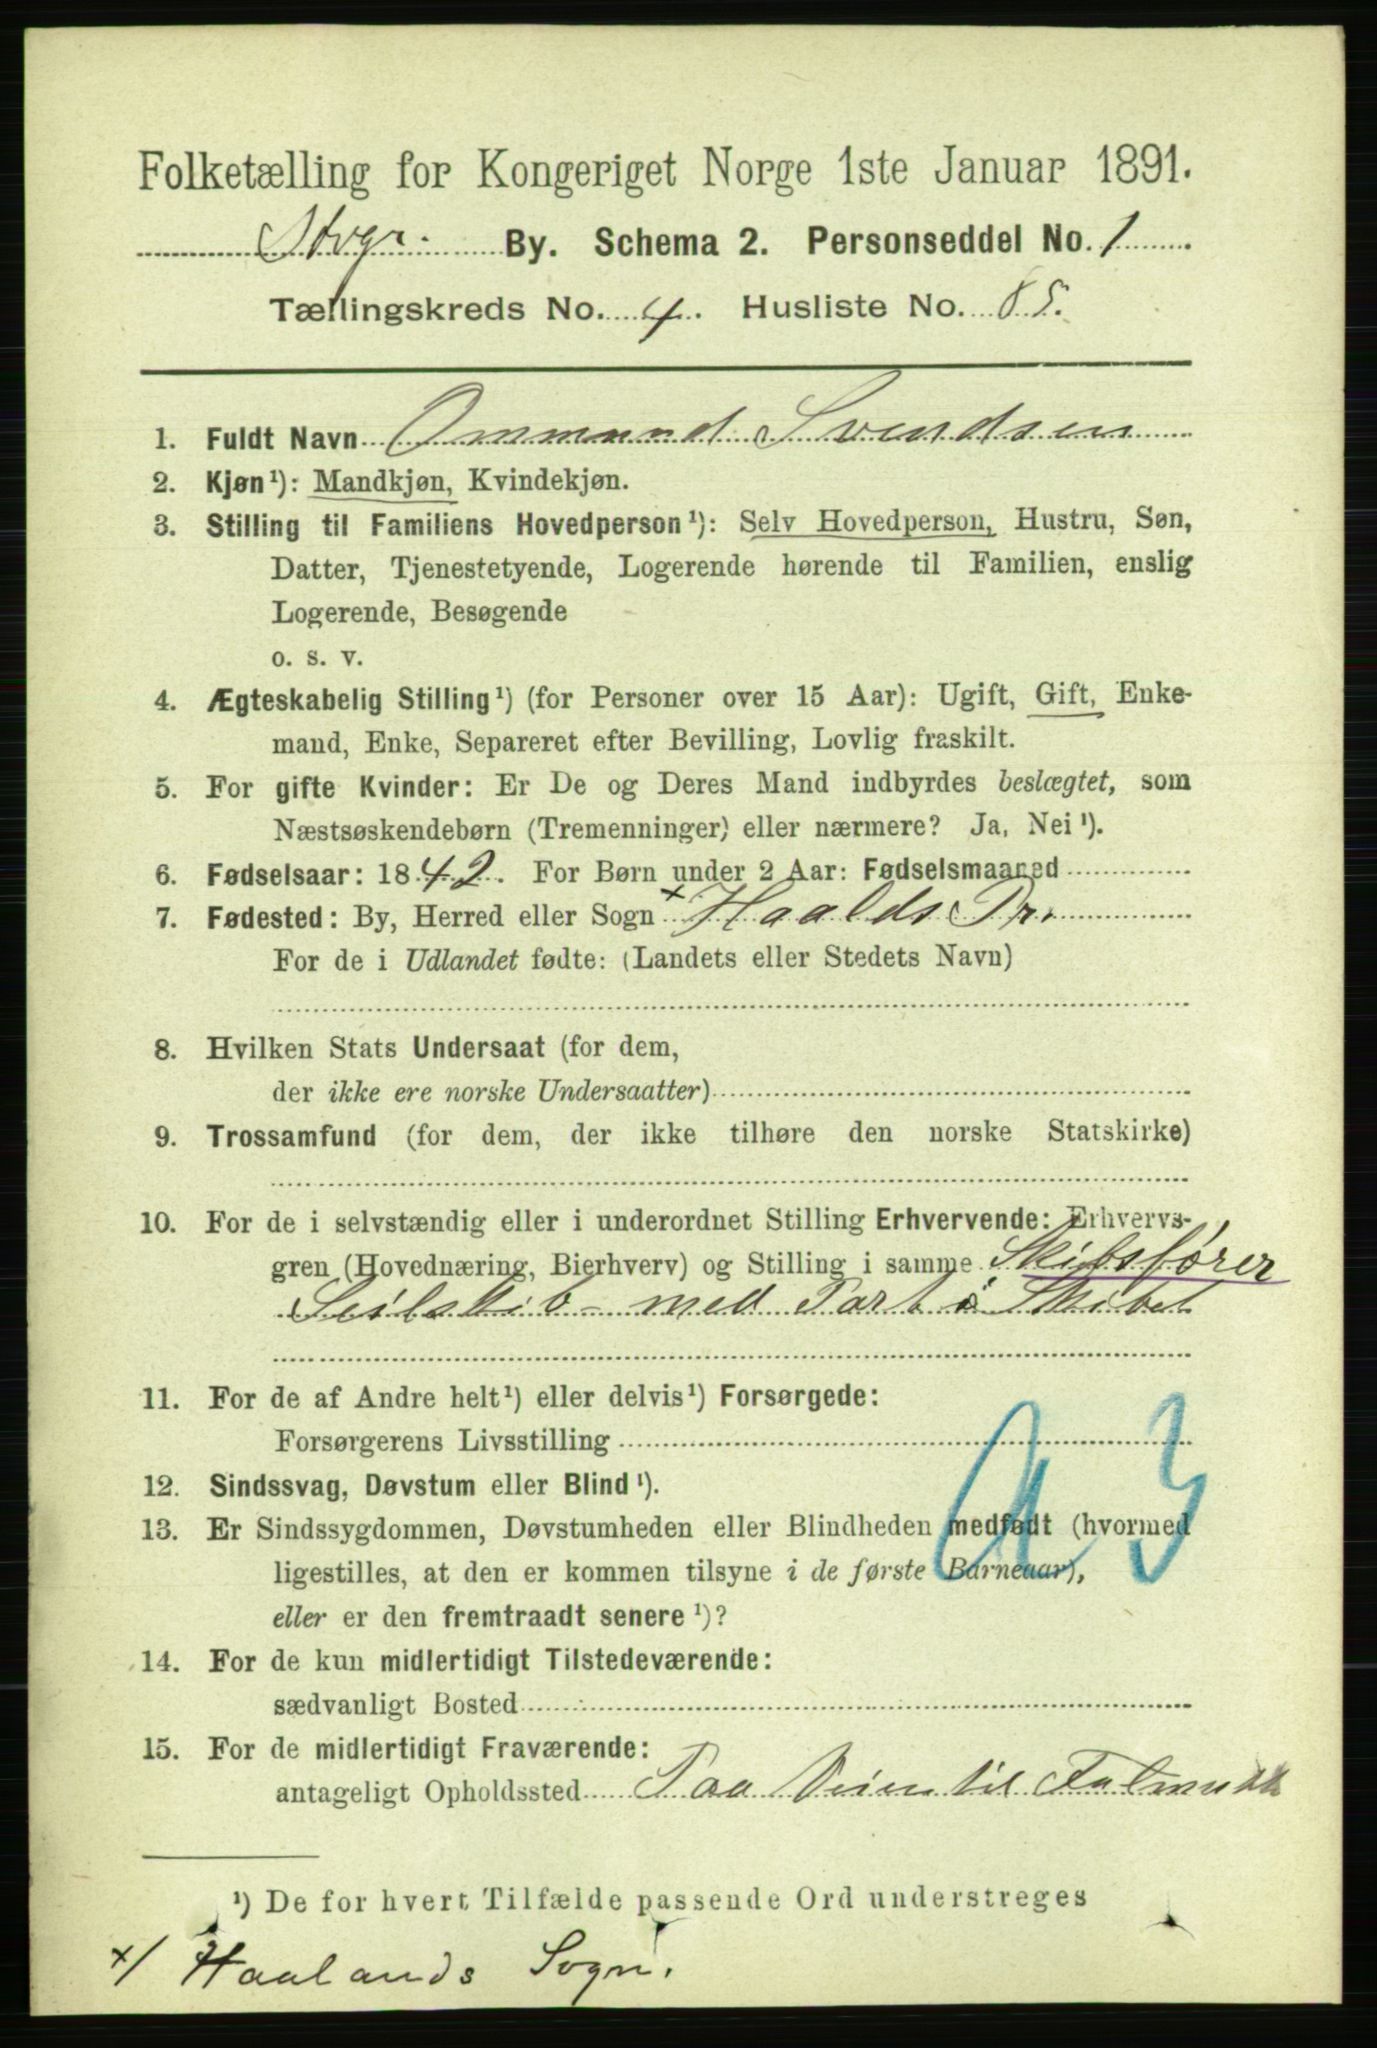 Folketælling for Kongeriget Norge 1ste Januar 1891.
Stvgr. By. Schema 2. Personseddel No. 1
Tællingskreds No. 4. Husliste No. 85.
1. Fuldt Navn Ommund Svendsen
2. Kjøn¹): Mandkjøn, Kvindekjøn.
3. Stilling til Familiens Hovedperson¹): Selv Hovedperson, Hustru, Søn,
Datter, Tjenestetyende, Logerende hørende til Familien, enslig
Logerende, Besøgende
o. s. v.
4. Ægteskabelig Stilling¹) (for Personer over 15 Aar): Ugift, Gift, Enke-
mand, Enke, Separeret efter Bevilling, Lovlig fraskilt.
5. For gifte Kvinder: Er De og Deres Mand indbyrdes beslægtet, som
Næstsøskendebørn (Tremenninger) eller nærmere? Ja, Nei¹).
6. Fødselsaar: 1842. For Børn under 2 Aar: Fødselsmaaned
7. Fødested: By, Herred eller Sogn × Haalds Pr.
For de i Udlandet fødte: (Landets eller Stedets Navn)
8. Hvilken Stats Undersaat (for dem,
der ikke ere norske Undersaatter)
9. Trossamfund (for dem, der ikke tilhøre den norske Statskirke)
10. For de i selvstændig eller i underordnet Stilling Erhvervende: Erhvervs-
gren (Hovednæring, Bierhverv) og Stilling i samme Skibsfører
Seilskib - med Part i Skibet
11. For de af Andre helt¹) eller delvis¹) Forsørgede:
Forsørgerens Livsstilling
12. Sindssvag, Døvstum eller Blind¹).
13. Er Sindssygdommen, Døvstumheden eller Blindheden medfødt (hvormed
ligestilles, at den er kommen tilsyne i de første Barneaar),
eller er den fremtraadt senere¹)?
14. For de kun midlertidigt Tilstedeværende:
sædvanligt Bosted
15. For de midlertidigt Fraværende:
antageligt Opholdssted Paa Veien til
¹) De for hvert Tilfælde passende Ord understreges
×/ Haalands Sogn.